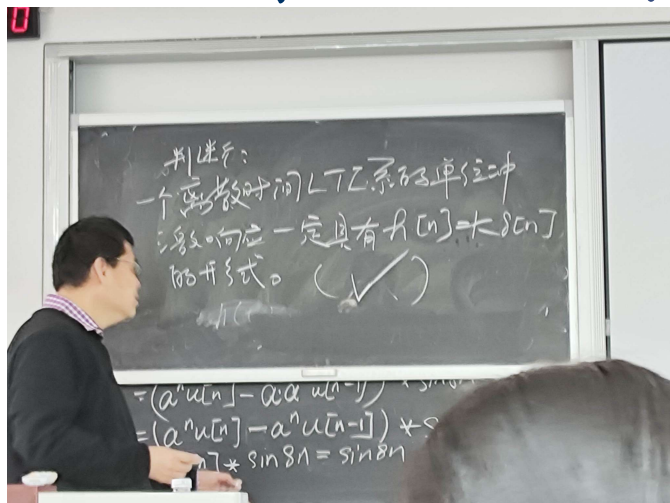 0
判断:
一个离散时间LTI系的单位冲
激响应一定具有h[n]=kδ[n]
的形式。(✓)
=(aⁿu[n]-a·a u[n-1]) * sin8n
=(aⁿu[n]-aⁿu[n-1])*
n]*sin8n=sin8n